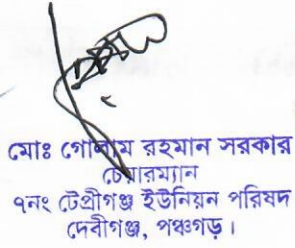 মোঃ গোলাম রহমান সরকার
চেয়ারম্যান
৭নং টেপ্রীগঞ্জ ইউনিয়ন পরিষদ
দেবীগঞ্জ, পঞ্চগড়।